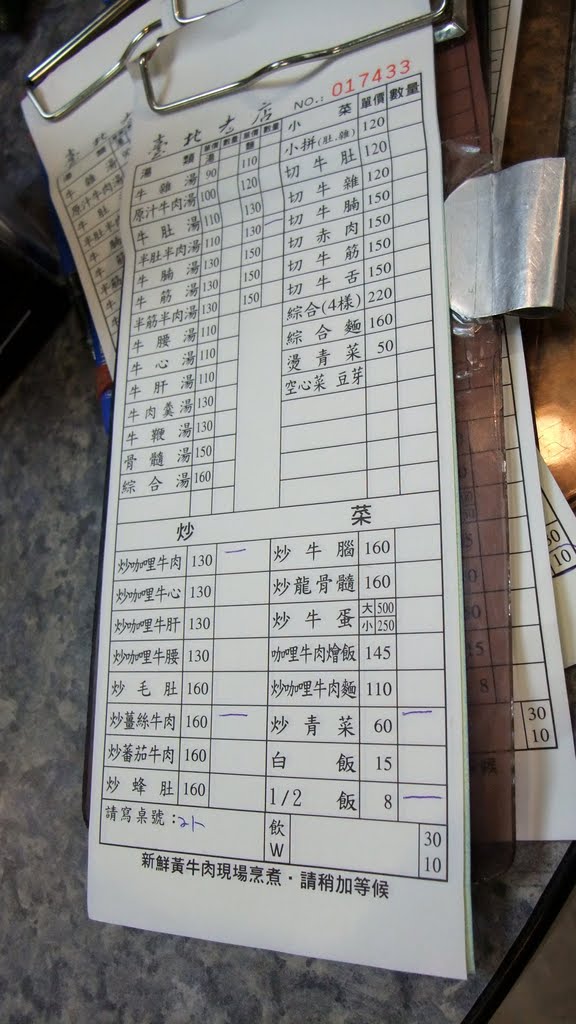 NO.: 017433
臺北古店
湯類 單價 數量 單價 數量 小菜 單價 數量
湯 麵
牛雜湯 90 110 小拼(肚.雜) 120
原汁牛肉湯 100 120 切牛肚 120
牛肚湯 110 130 切牛雜 120
半肚半肉湯 110 130 一 切牛腩 150
牛腩湯 130 150 切赤肉 150
牛筋湯 130 150 切牛筋 150
半筋半肉湯 130 150 切牛舌 150
牛腰湯 110 綜合(4樣) 220
牛心湯 110 綜合麵 160
牛肝湯 110 燙青菜 50
牛肉羹湯 130 空心菜 豆芽
牛鞭湯 130
骨髓湯 150
綜合湯 160
炒菜
炒咖哩牛肉 130 一 炒牛腦 160
炒咖哩牛心 130 炒龍骨髓 160
炒咖哩牛肝 130 炒牛蛋 大 500 小 250
炒咖哩牛腰 130 咖哩牛肉燴飯 145
炒毛肚 160 炒咖哩牛肉麵 110
炒薑絲牛肉 160 一 炒青菜 60 一
炒蕃茄牛肉 160 白飯 15
炒蜂肚 160 1/2飯 8 一
請寫桌號: 飲 W 30 10
新鮮黃牛肉現場烹煮·請稍加等候